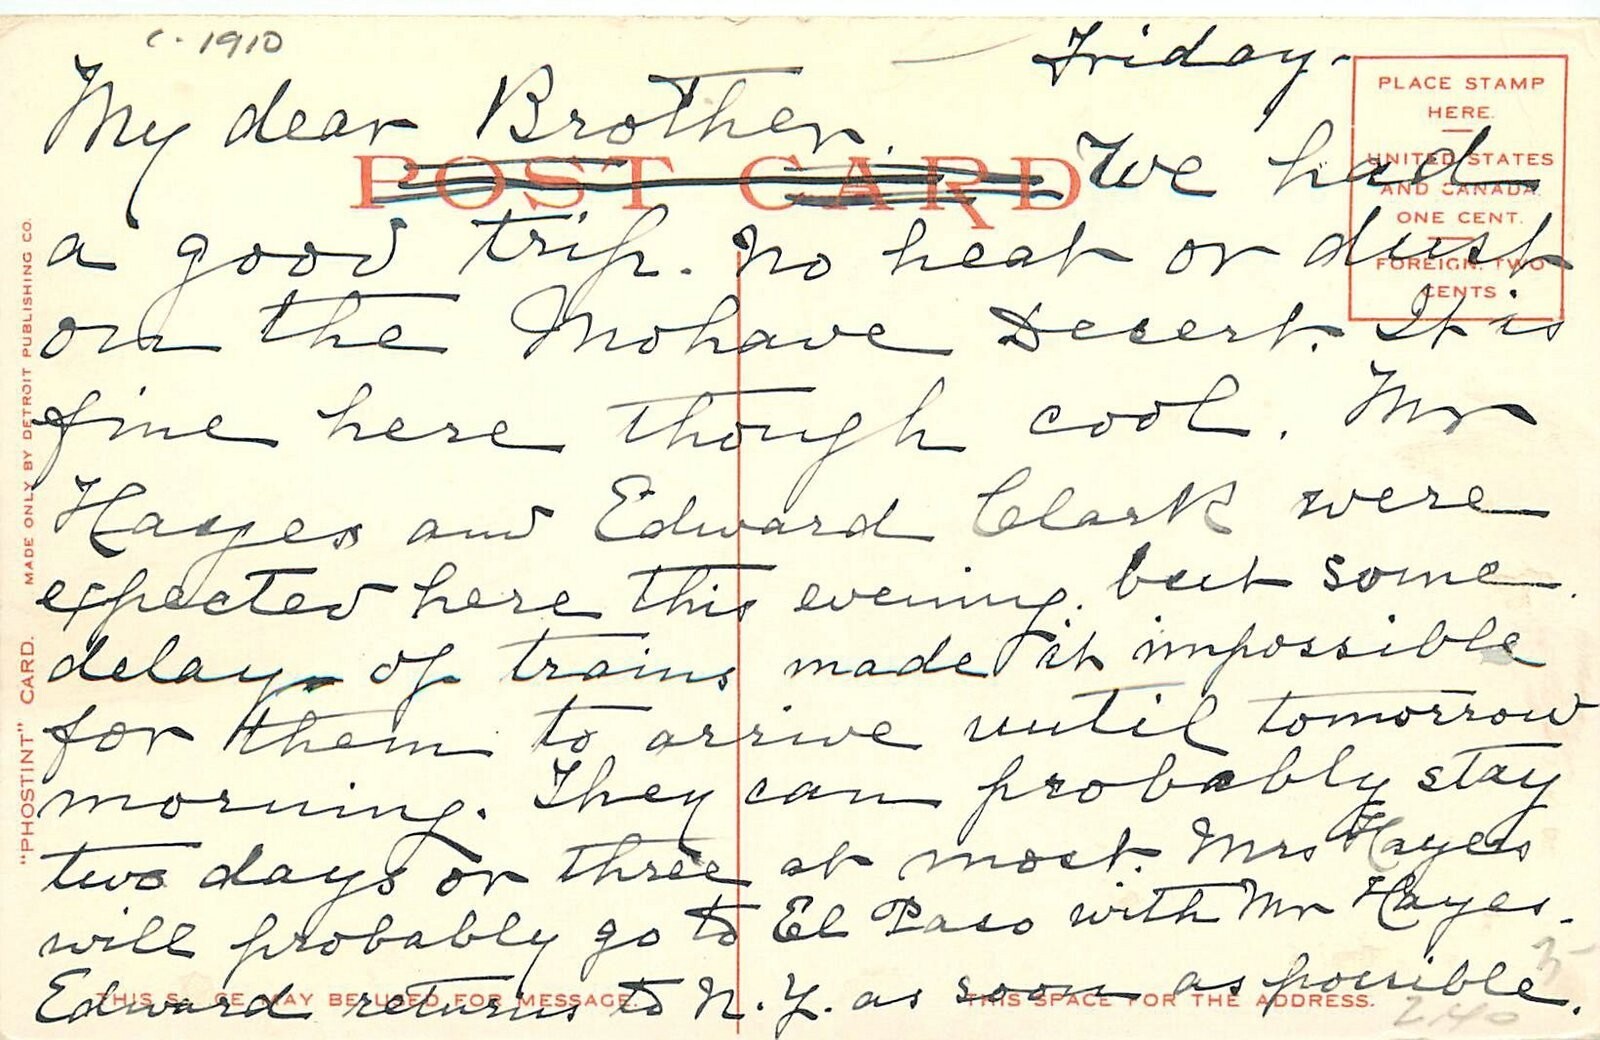 c. 1910
Friday.
My dear Brother.
POST CARD
PLACE STAMP
HERE.
UNITED STATES
AND CANADA
ONE CENT.
FOREIGN. TWO
CENTS
We had
a good trip. No heat or dust
on the Mohave Desert. It is
fine here though cool. Mr
Hayes and Edward Clark were
expected here this evening. but some
delay of trains made it impossible
for them to arrive until tomorrow
morning. They can probably stay
two days or three at most. Mrs Hayes
will probably go to El Paso with Mr Hayes.
Edward returns to N.Y. as soon as possible.
THIS SPACE MAY BE USED FOR MESSAGE.
THIS SPACE FOR THE ADDRESS.
"PHOSTINT" CARD. MADE ONLY BY DETROIT PUBLISHING CO.
240